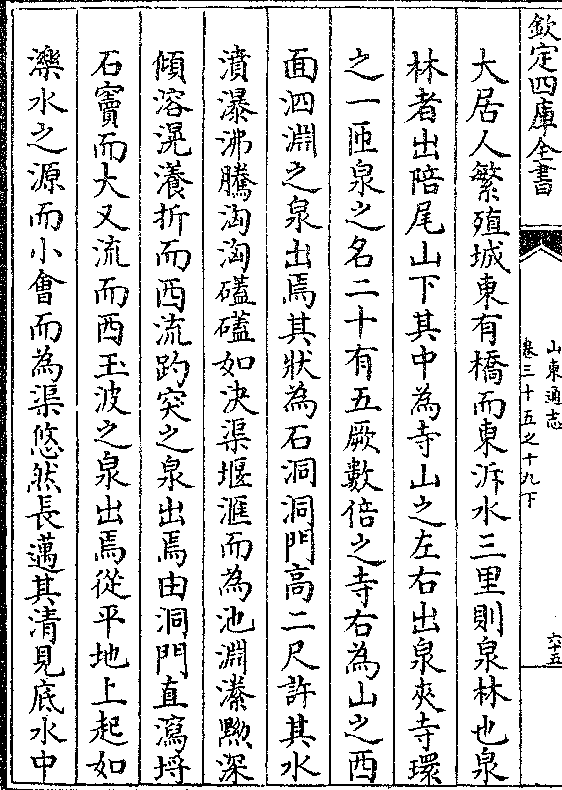 欽定四庫全書
山東通志
卷三十五之十九下
六十五
大居人繁殖城東有橋而東泝水三里則泉林也泉
林者出陪尾山下其中為寺山之左右出泉夾寺環
之一匝泉之名二十有五厥數倍之寺右為山之西
面泗淵之泉出焉其狀為石洞洞門高二尺許其水
濆瀑沸騰洶洶礚礚如決渠堰滙而為池淵瀠黝深
傾溶滉瀁折而西流趵突之泉出焉由洞門直瀉埒
石竇而大又流而西玉波之泉出焉從平地上起如
濼水之源而小會而為渠悠然長邁其清見底水中